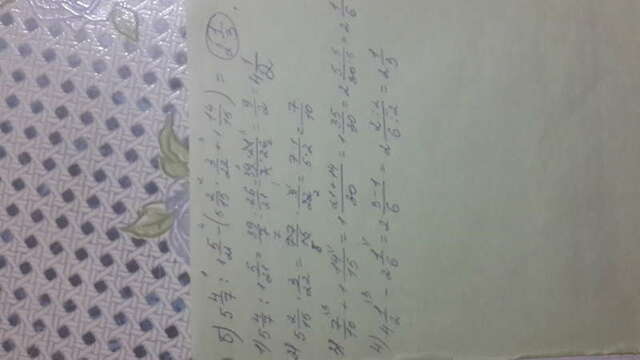 б) 5 4/7 : 1 5/21 - (5 2/15 · 3/22 + 1 14/15) = 2 1/3.
1) 5 4/7 : 1 5/21 = 39/7 : 26/21 = 39 · 21/7 · 26 = 9/2 = 4 1/2
2) 5 2/15 · 3/22 = 77/15 · 3/22 = 7·1/5·2 = 7/10
3) 7/10 + 1 14/15 = 1 21+14/30 = 1 35/30 = 2 5:5/30:5 = 2 1/6
4) 4 1/2 - 2 1/6 = 2 3-1/6 = 2 2:2/6:2 = 2 1/3